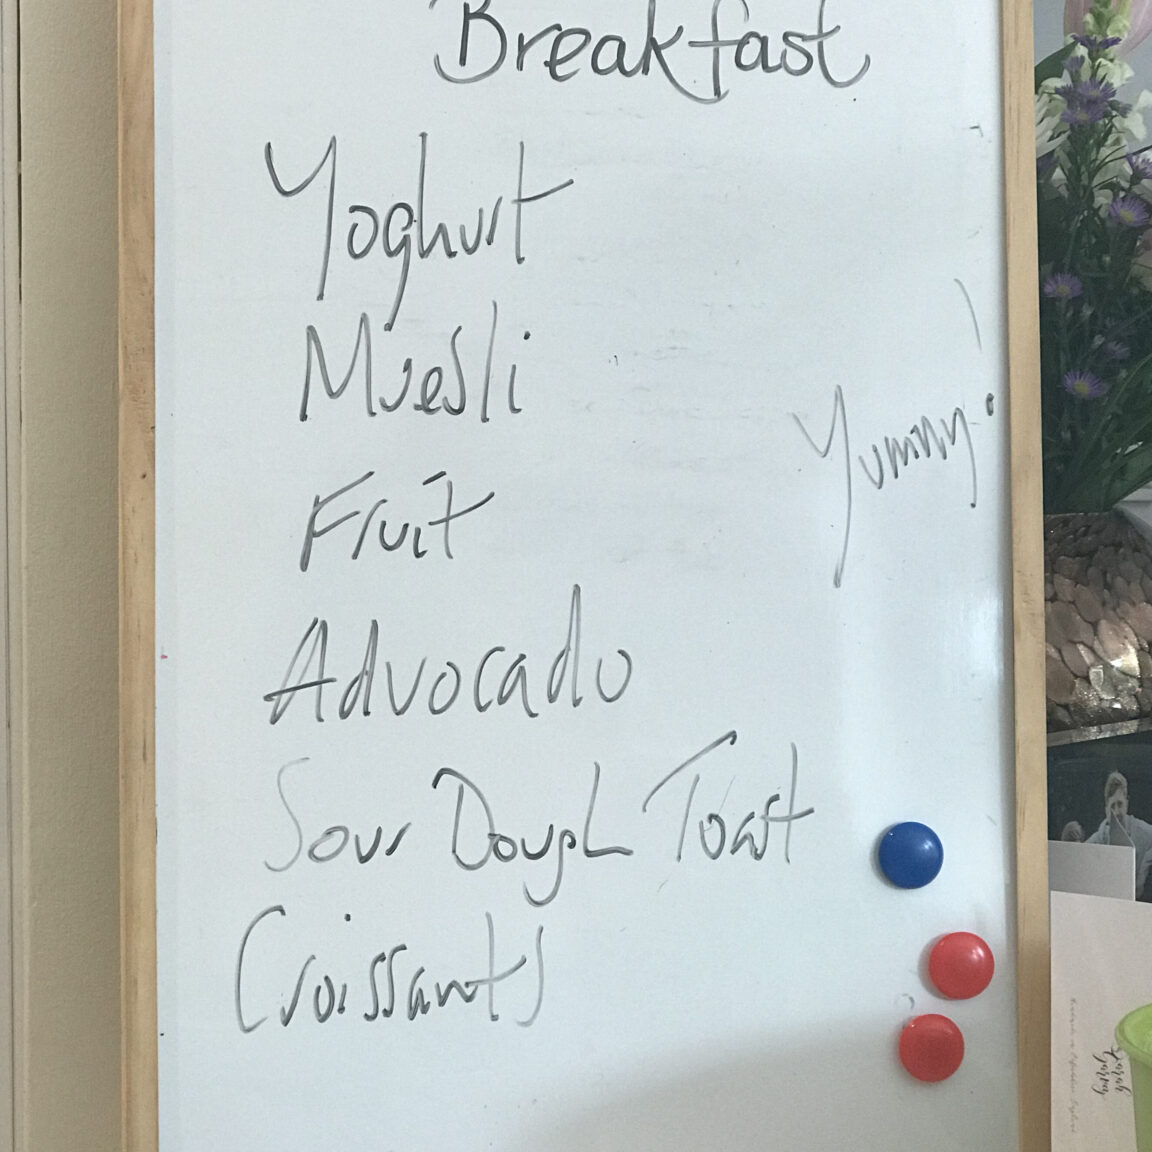 Breakfast
Yoghurt
Muesli
Yummy!
Fruit
Advocado
Sour Dough Toast
Croissants